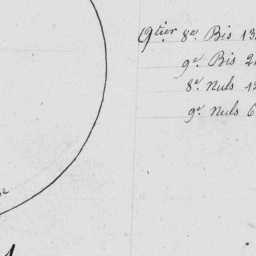 9tier 8e. Bis 13
9e. Bis 2
8e Nuls 12
9e Nuls 6